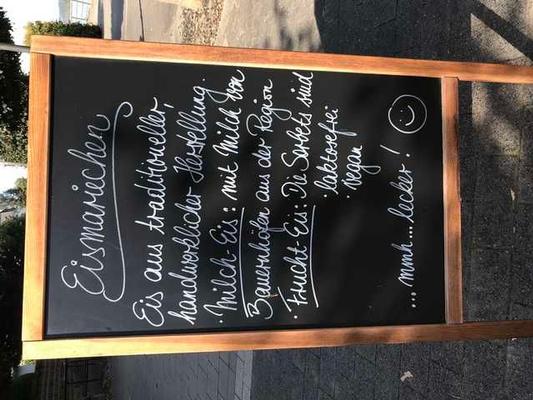 Eismariechen
Eis aus traditioneller,
handwerklicher Herstellung.
· Milch-Eis: mit Milch von
Bauernhöfen aus der Region
· Frucht-Eis: Die Sorbets sind
· laktosefrei
· vegan
... mmh ... lecker!